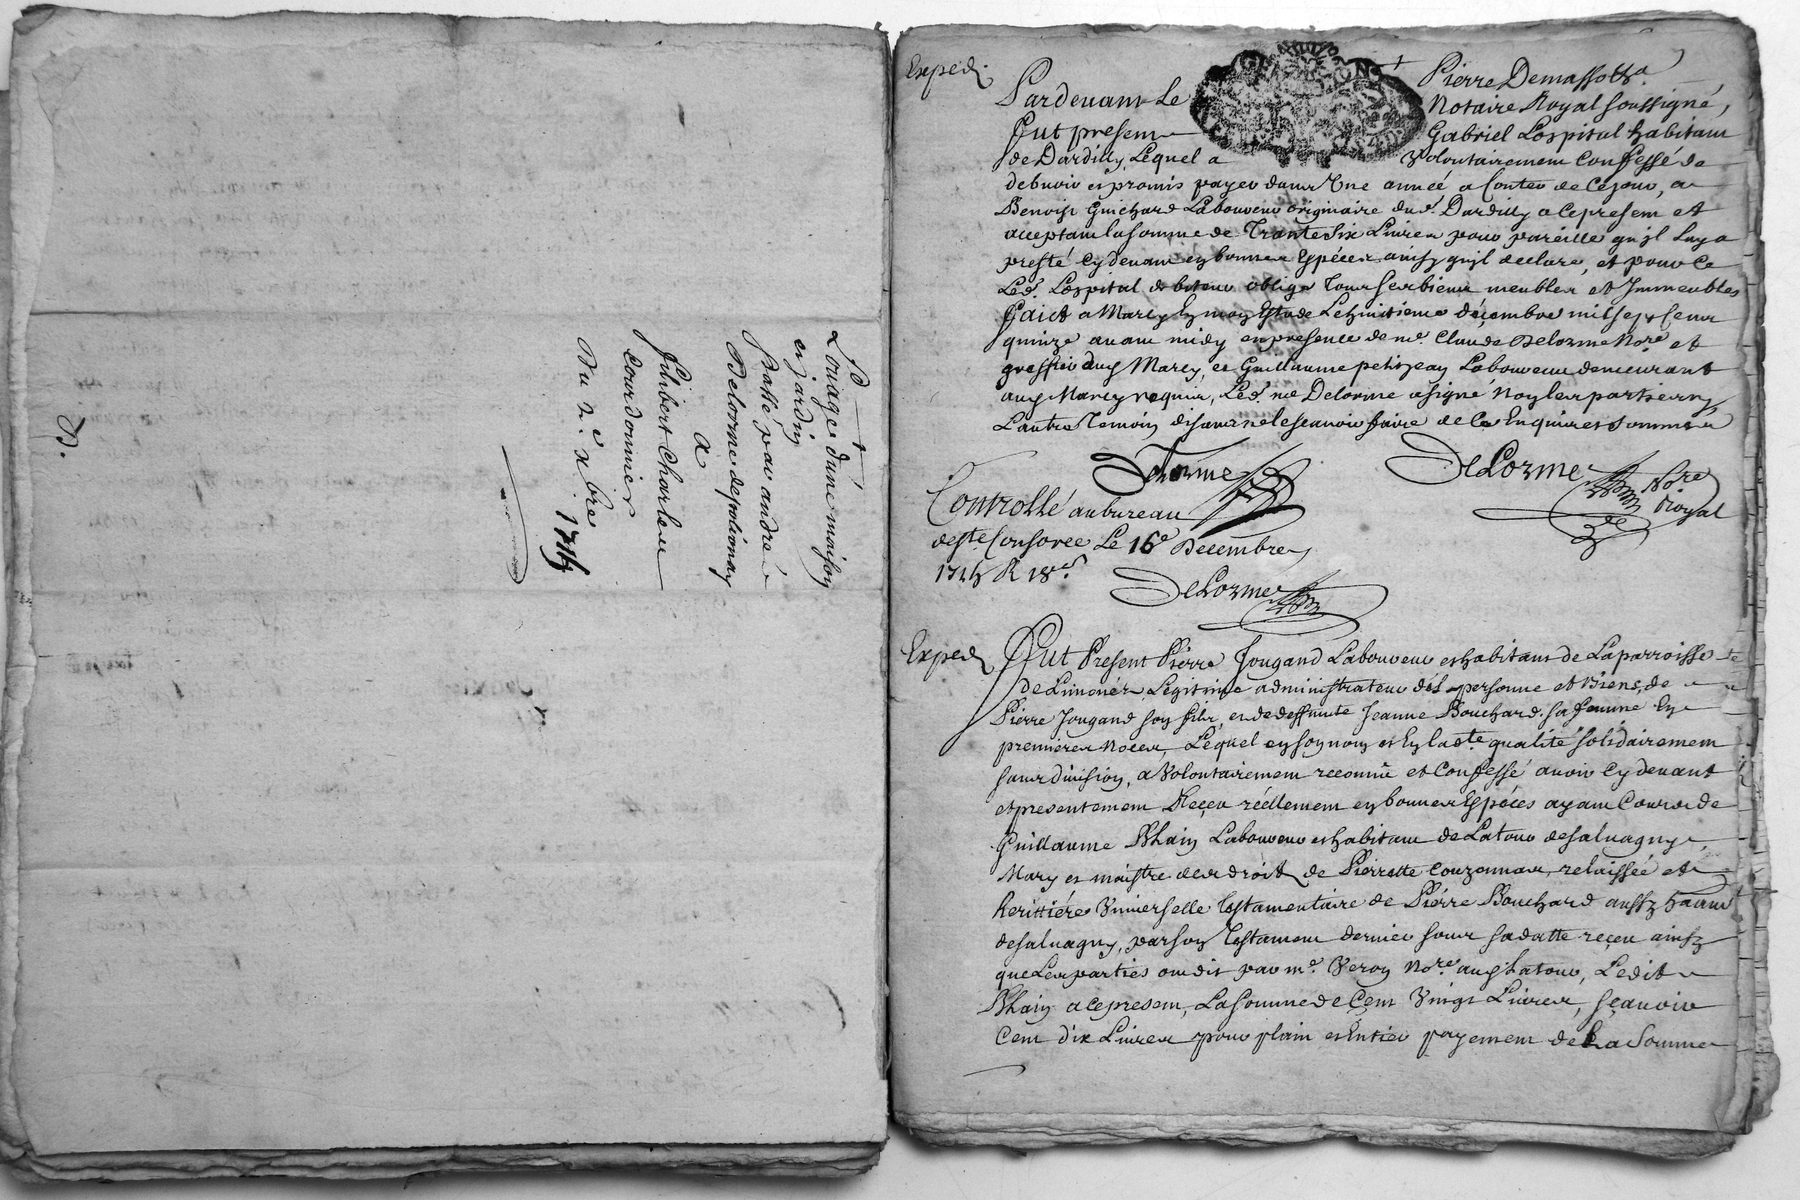 Louage d'une maison
et jardin
Passé par andré
Delorme de polionay
a
filibert Charles
Courdonnier
Du 2e xbre
1715
B.
Exped.
Pardevant Le Pierre Demassotte
Notaire Royal soussigné,
fut present Gabriel Lospital habitant
de Dardilly, Lequel a volontairement Confessé de
debvoir et promis payer dans Une année a Conter de Cejour, a
Benoist Guichard Laboureur originaire dud. Dardilly a cepresent et
acceptant la somme de Trante Six Livres pour pareille qu'jl Luy a
presté Cy devant en bonnes Espéces ainsy qu'jl declare, et pour Ce
Led. Lospital debiteur oblige Tous ses biens meubles et Jmmeubles
faict a Marcy Le huitieme décembre mil sept Cent
quinze avant midy en presence de me. Claude Delorme Nore. et
greffier aud. Marcy, et Guillaume petitjean Laboureur demeurant
aud. Marcy requis, Led. me Delorme a signé Non les parties ny
L'autre Temoin disant ne le scavoir faire de Ce Enquis et Sommés
Delorme
DeLorme Nore Royal
Controllé au bureau
deste. Consorce Le 16e Decembre
1715 R 18s.
DeLorme
Exped
Fut Present Pierre Jougand Laboureur et habitant de La parroisse
de Limonés Legitime administrateur dés personne et Biens, de
Pierre Jougand son fils, et de deffunte Jeanne Bouchard sa femme En
premieres Noces, Lequel en son nom et En lad.te qualité solidairement
sans division, a Volontairement reconnu et Confessé avoir Cy devant
et presentement Reçeu réellement en bonnes Espéces ayant Cours de
Guillaume Blain Laboureur et habitant de La tour de salvagny,
Mary et maistre des droits de Pierrette Couzonnas, relaissée et
heritiére Universelle Testamentaire de Piérre Bouchard
de salvagny, par son Testament dernier sous sa datte reçeu ainsy
que Les parties ont dit par me. Veron Nore. aud. La tour, Ledit
Blain a cepresent, La somme de Cent Vingt Livres, sçavoir
Cent dix Livres pour plain et Entier payement de La Somme